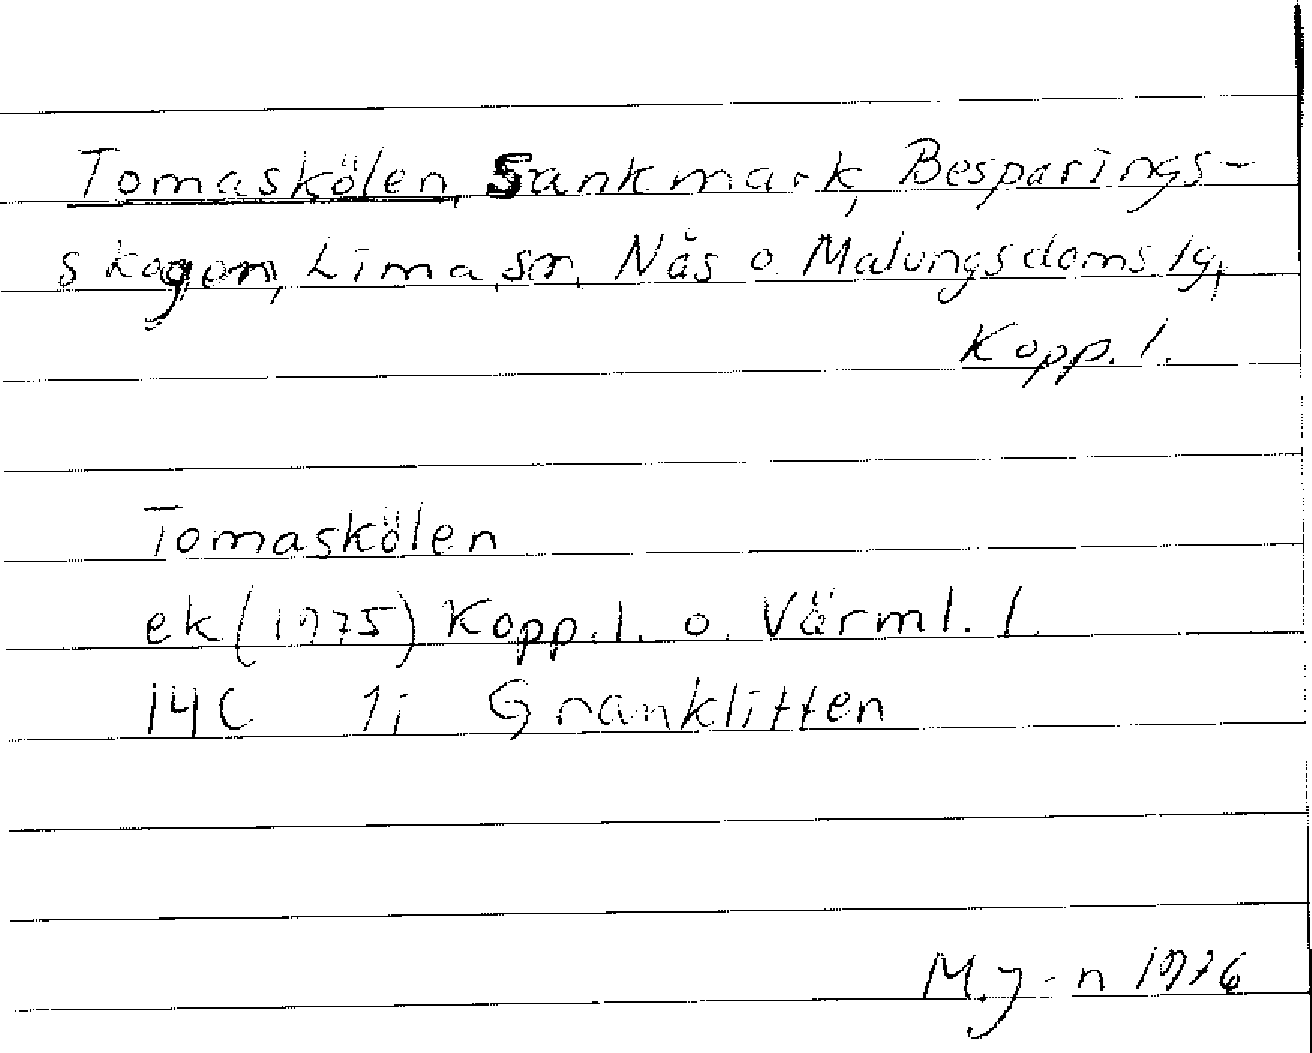 Tomaskölen, Sankmark, Besparings-
skogen, Lima sn, Näs o. Malungs doms lg,
Kopp. l.
Tomaskölen
ek (1975) Kopp. l. o. Värml. l.
14C 1i Granklitten
M. J-n 1976